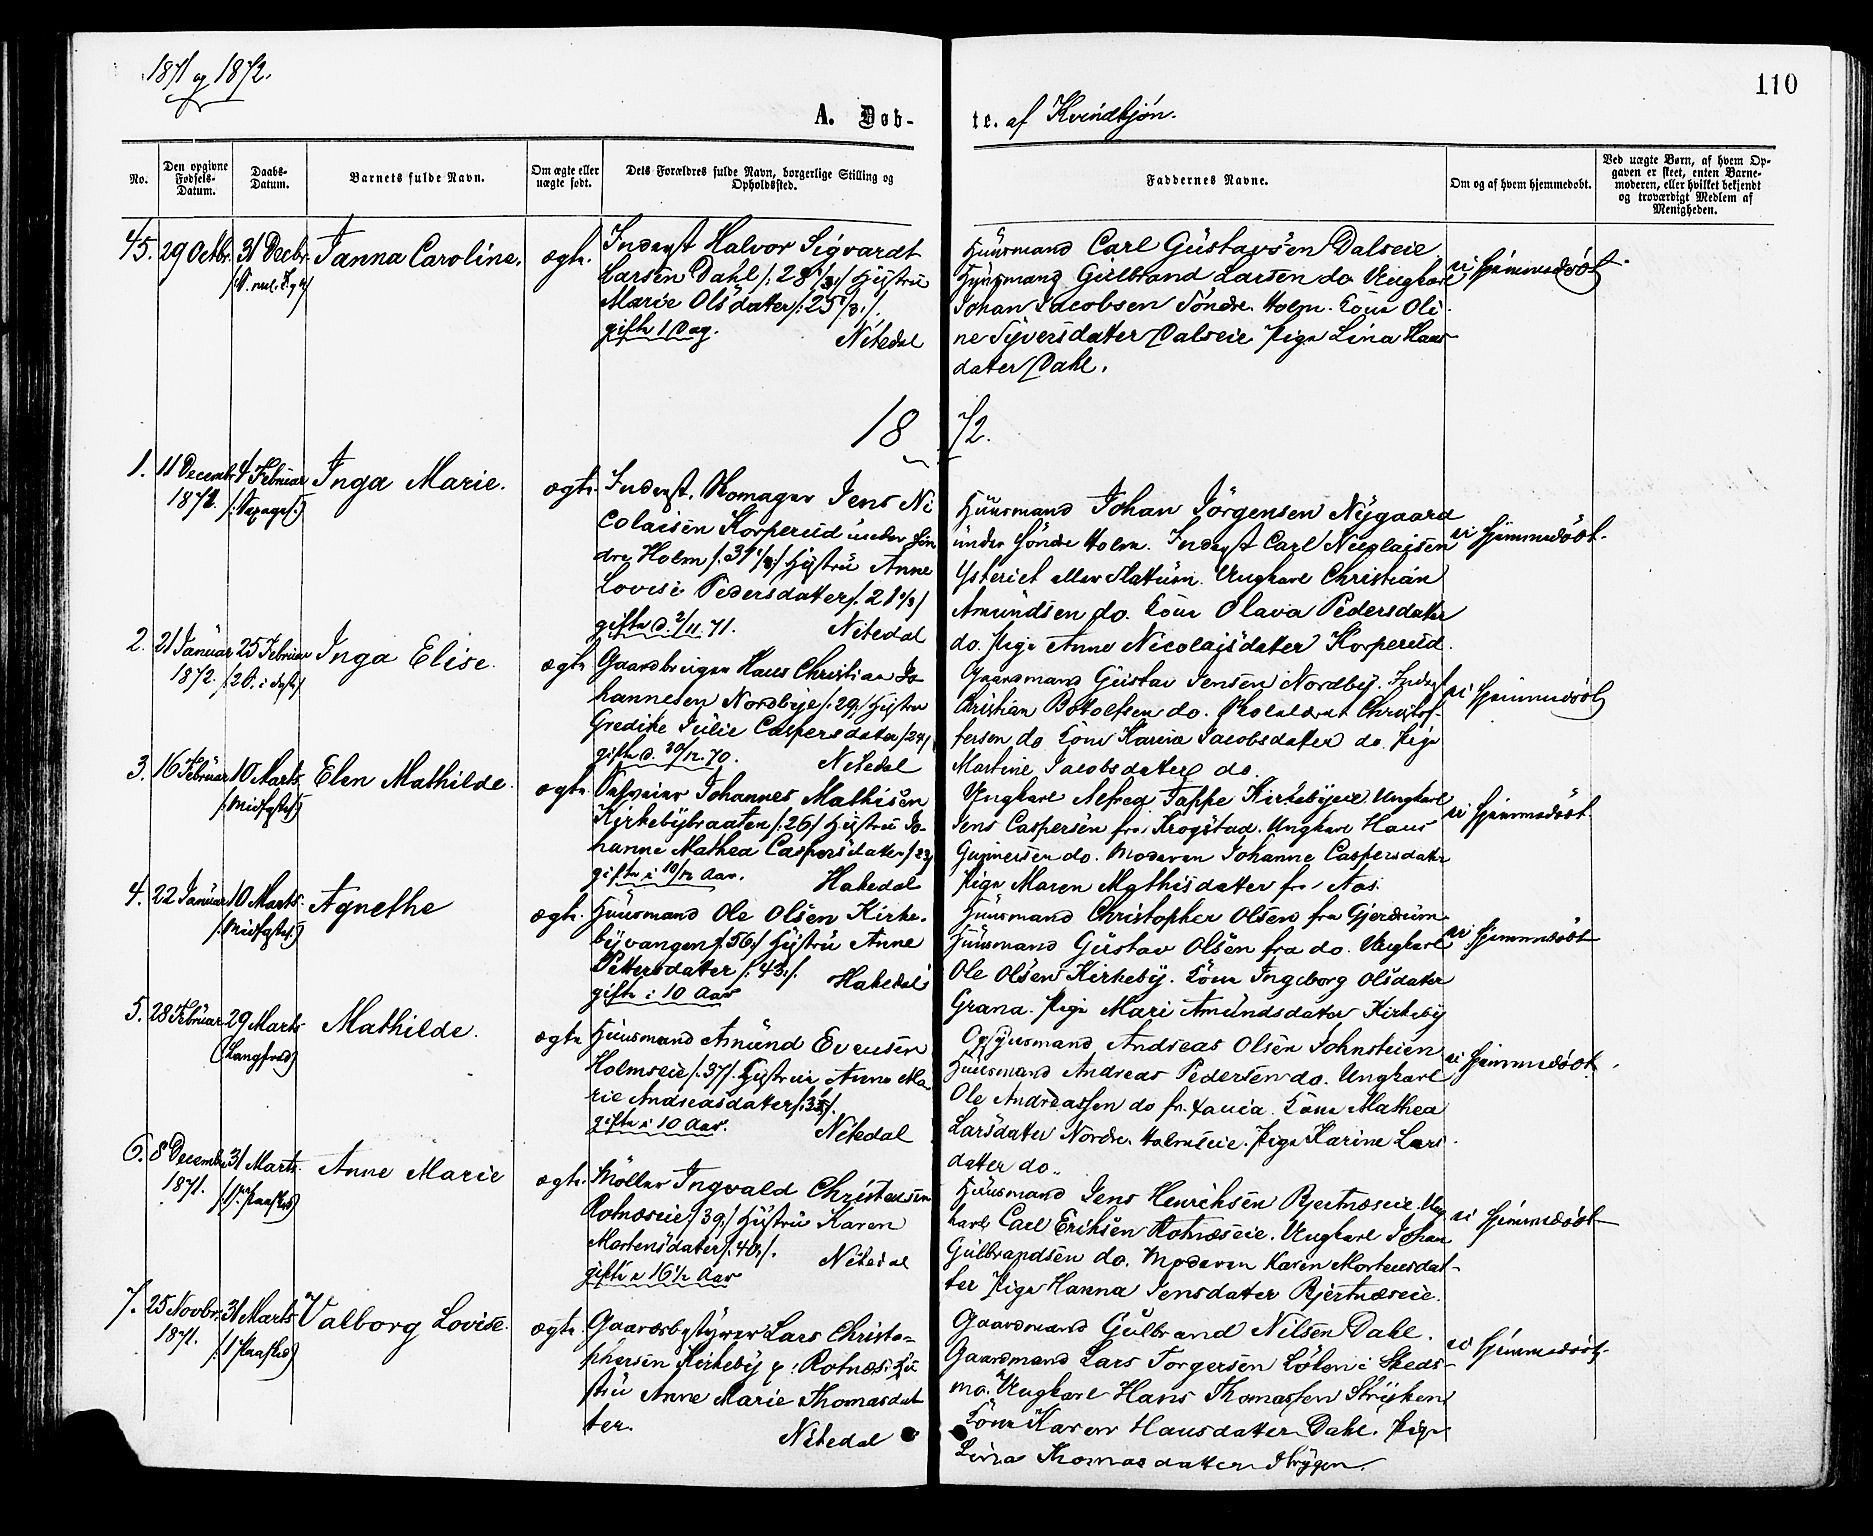 1871 og 1872.
110
A. Døb-
te. af Kvindkjøn.
No.
Den opgivne Fødsels-Datum.
Daabs-Datum.
Barnets fulde Navn.
Om ægte eller uægte født.
Dets Forældres fulde Navn, borgerlige Stilling og Opholdssted.
Faddernes Navne.
Om og af hvem hjemmedøbt.
Ved uægte Børn, af hvem Op-
gaven er skeet, enten Barne-
moderen, eller hvilket bekjendt
og troværdigt Medlem af
Menigheden.
45. 29 Octbr. 31 Decbr. Janna Caroline. ægte.
Inderst Halvor Sigvardt
Larsen Dahl Hustru
Marie Olsdatter
gifte 1 Dag. Nitedal
Huusmand Carl Gustavsen Dalseie
Huusmand Gulbrand Larsen do Ungkarl
Johan Jacobsen Søndre Holm. Kone Oli-
ne Syversdatter Dalseie Pige Lina Hans
datter Dahl.
ei hjemmedøbt.
1872.
1. 11 Decembr 1871. 4 Februar Inga Marie. ægte.
Inderst. Skomager Jens Ni
colaisen Korperud under Søn
dre Holm Hustru Anne
Lovise Pedersdatter
gifte d. 2/11. 71. Nitedal
Huusmand Johan Jørgensen Nygaard
under Søndre Holm. Inderst Carl Nicolaisen
Ungkarl Christian
Amundsen do. Kone Olava Pedersdatter
do. Pige Anne Nicolaisdatter Korperud.
ei hjemmedøbt.
2. 21 Januar 1872. 25 Februar Inga Elise. ægte
Gaardbruger Hans Christian Jo-
hannesen Nordbye /:29:/ Hustru
Julie Caspersdatter /24/
gifte d. 30/12. 70. Nitedal
Gaardmand Gustav Jensen Nordby. Inderst
Christian Botolfsen do. Christof-
fersen do Kone Karina Jacobsdatter do. Pige
Martine Jacobsdatter do.
ei hjemmedøbt
3. 16 Februar 10 Marts. /:Midfaste:/ Elen Mathilde. ægte.
Johannes Mathisen
Kirkebybraaten /:26:/ Hustru Jo-
hanne Mathea Caspersdatter /23/
gifte i 10/12 Aar. Hakedal
Ungkarl Alfred Tappe Kirkebyeie. Ungkarl
Jens Caspersen fra Krogstad. Ungkarl Hans
Gunnersen do. Moderen Johanne Caspersdatter
Pige Maren Mathisdatter fra Aas.
ei hjemmedøbt.
4. 22 Januar 10 Marts. /:Midfaste:/ Agnethe ægte.
Huusmand Ole Olsen Kirke-
byvangen /:56:/ Hustru Anne
Pettersdatter /:43:/. Hakedal
gifte i 10 Aar
Huusmand Christopher Olsen fra Gjerdrum.
Huusmand Gustav Olsen fra do. Ungkarl
Ole Olsen Kirkeby. Kone Ingeborg Olsdatter
Grana. Pige Mari Amundsdatter Kirkeby
ei hjemmedøbt
5. 28 Februar 29 Marts (Langfred) Mathilde. ægte
Huusmand Amund Evensen
Holmseie /:37/. Hustru Anne Ma-
rie Andreasdatter
gifte i 10 Aar. Nitedal
Huusmand Andreas Olsen
Huusmand Andreas Pedersen do. Ungkarl
Ole Andreassen do Kone Mathea
Larsdatter Nordre Holmseie. Pige Karine Lars
datter do..
ei hjemmedøbt
6. 8 Decembr 1871. 31 Marts. Anne Marie ægte.
Møller Ingvald Christensen
Rotnæseie /39:/ Hustru Karen
Mortensdatter /:40:/. Nitedal
gifte i 16½ Aar
Huusmand Jens Henriksen Bjertnæseie. Ung
karl Carl Eriksen Rotnæseie. Ungkarl Johan
Gulbrandsen do. Moderen Karen Mortensdat-
ter Pige Hanna Jensdatter Bjertnæseie.
ei hjemmedøbt
7. 25 Novbr. 1871. 31 Marts Valborg Lovise. ægte.
Gaardsbestyrer Lars Christo-
phersen Kirkeby p: Rotnæs: Hu
stru Anne Marie Thomasdat
ter. Nitedal
Gaardmand Gulbrand Nilsen Dahl.
Gaardmand Lars Torgersen i Skeds-
mo. Ungkarl Hans Thomassen Stryken
Kone Karen Hansdatter Dahl. Pige
Lina Thomasdatter Strygen.
ei hjemmedøbt.